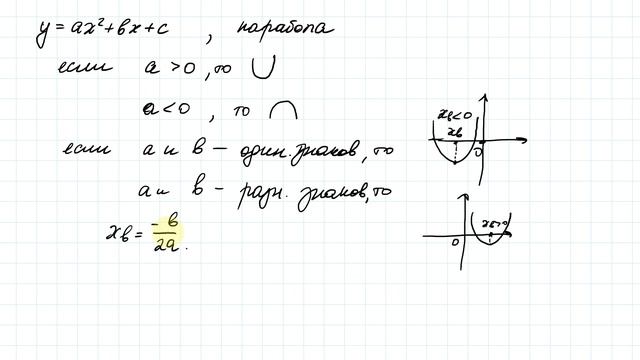 y = ax² + bx + c , парабола
если a > 0 , то ∪
a < 0 , то ∩
если a и b – один. знаков, то
a и b – разн. знаков, то
xв = -b/2a .
xв<0
xв
0
xв>0
0